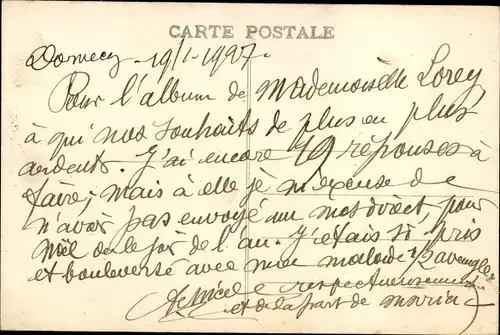 CARTE POSTALE
Domecy 19/1-1927.
Pour l'album de Mademoiselle Lorey
à qui nos souhaits de plus en plus
ardents. J'ai encore 79 réponses à
faire; mais à elle je m'excuse de
n'avoir pas envoyé un mot direct, pour
Noël ou le jor de l'an. J'étais si pris
et bouleversé avec mon malade 1/2 aveugle
respectueusement
et de la part de